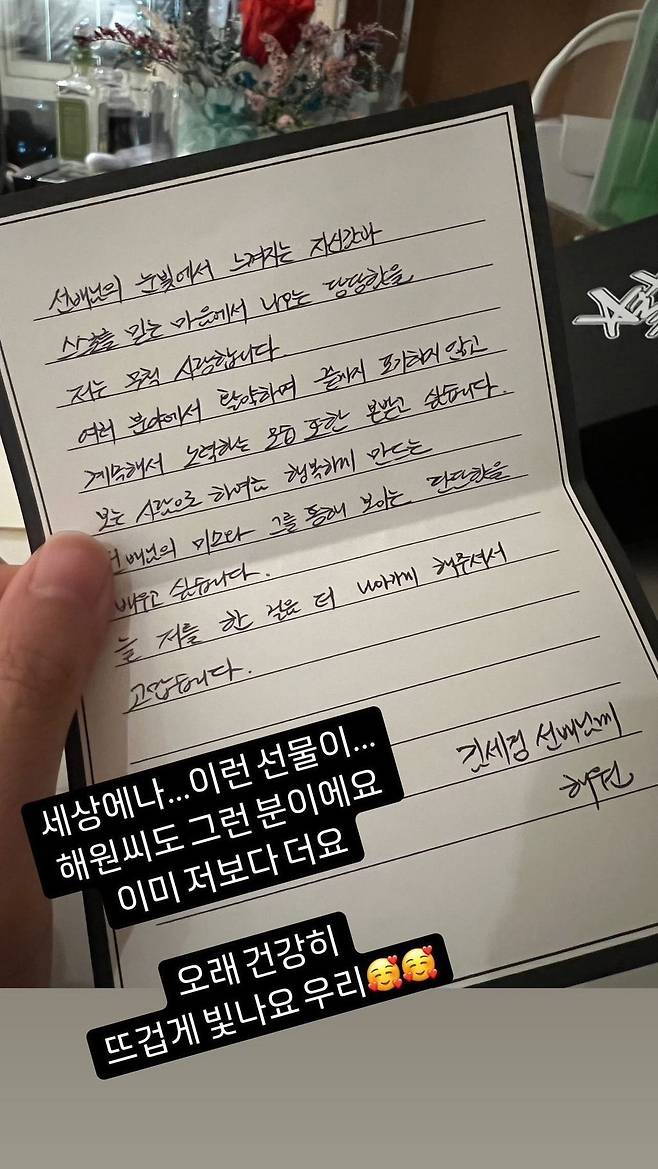 선배님의 눈빛에서 느껴지는 자신감과
상호를 믿는 마음에서 나오는 당당함을
저는 무척 사랑합니다.
여러 분야에서 활약하며 끝까지 포기하지 않고
계속해서 노력하는 모습 또한 본받고 싶습니다.
보는 사람으로 하여금 행복하게 만드는
선배님의 미소와 그를 통해 보이는 단단함을
배우고 싶습니다.
늘 저를 한 걸음 더 나아가게 해주셔서
고맙습니다.
김세정 선배님께
해원
세상에나...이런 선물이...
해원씨도 그런 분이에요
이미 저보다 더요
오래 건강히
뜨겁게 빛나요 우리🥰🥰